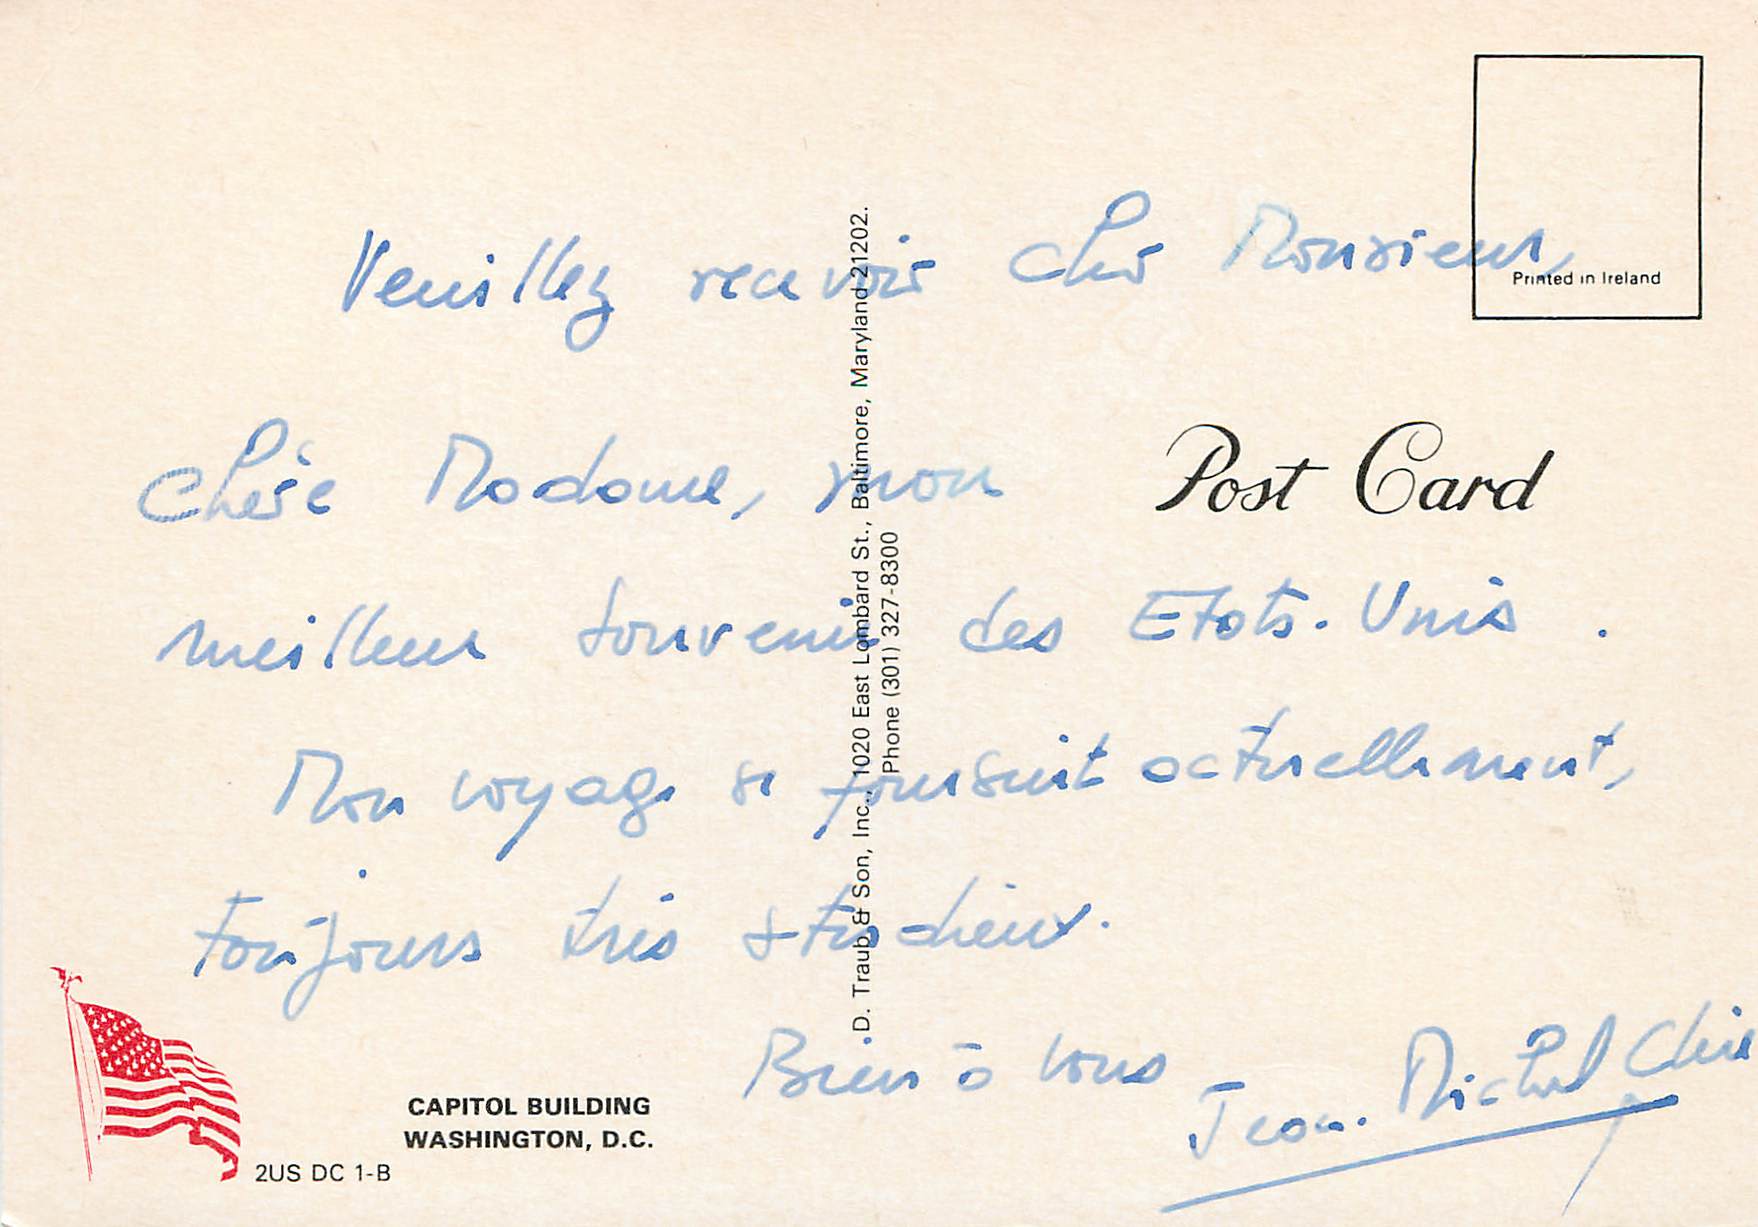 Printed in Ireland
Veuillez recevoir cher Monsieur,
Chère Madame, mon
Post Card
meilleur souvenir des Etats-Unis.
Mon voyage se poursuit actuellement,
toujours très studieux.
Bien à vous
Jean-Michel
CAPITOL BUILDING
WASHINGTON, D.C.
2US DC 1-B
D. Traub & Son, Inc., 1020 East Lombard St., Baltimore, Maryland 21202.
Phone (301) 327-8300